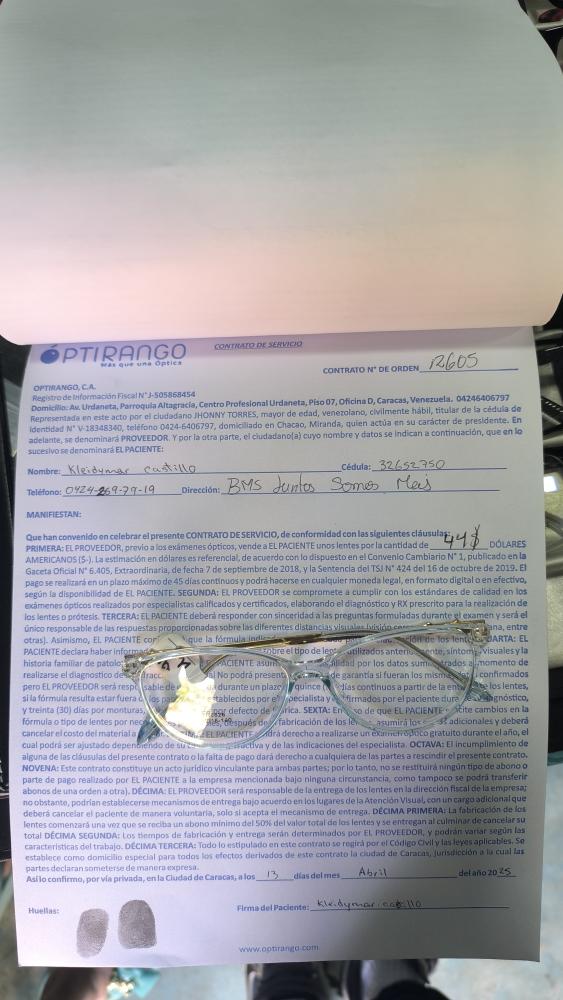 ÓPTIRANGO
Más que una Óptica
CONTRATO DE SERVICIO
CONTRATO N° DE ORDEN R605
OPTIRANGO, C.A.
Registro de Información Fiscal N° J-505868454
Domicilio: Av. Urdaneta, Parroquia Altagracia, Centro Profesional Urdaneta, Piso 07, Oficina D, Caracas, Venezuela. 04246406797
Representada en este acto por el ciudadano JHONNY TORRES, mayor de edad, venezolano, civilmente hábil, titular de la cédula de
identidad N° V-18348340, teléfono 0424-6406797, domiciliado en Chacao, Miranda, quien actúa en su carácter de presidente. En
adelante, se denominará PROVEEDOR. Y por la otra parte, el ciudadano(a) cuyo nombre y datos se indican a continuación, que en lo
sucesivo se denominará EL PACIENTE:
Nombre: Kleidymar castillo Cédula: 32652750
Teléfono: 0424-269-77-19 Dirección: BMS Juntos Somos Mas
MANIFIESTAN:
Que han convenido en celebrar el presente CONTRATO DE SERVICIO, de conformidad con las siguientes cláusulas:
PRIMERA: EL PROVEEDOR, previo a los exámenes ópticos, vende a EL PACIENTE unos lentes por la cantidad de 44$ DÓLARES
AMERICANOS ($-). La estimación en dólares es referencial, de acuerdo con lo dispuesto en el Convenio Cambiario N° 1, publicado en la
Gaceta Oficial N° 6.405, Extraordinaria, de fecha 7 de septiembre de 2018, y la Sentencia del TSJ N° 424 del 16 de octubre de 2019. El
pago se realizará en un plazo máximo de 45 días continuos y podrá hacerse en cualquier moneda legal, en formato digital o en efectivo,
según la disponibilidad de EL PACIENTE. SEGUNDA: EL PROVEEDOR se compromete a cumplir con los estándares de calidad en los
exámenes ópticos realizados por especialistas calificados y certificados, elaborando el diagnóstico y RX prescrito para la realización de
los lentes o prótesis. TERCERA: EL PACIENTE deberá responder con sinceridad a las preguntas formuladas durante el examen y será el
único responsable de las respuestas proporcionadas sobre las diferentes distancias visuales (visión
otras). Asimismo, EL PACIENTE que la fórmula de los CUARTA: EL
PACIENTE declara haber sobre el tipo de utilizados anteriormente, visuales y la
historia familiar de PACIENTE por los datos momento de
realizarse el diagnostico de No podrá presentar de garantía si fueran los confirmados
pero EL PROVEEDOR será durante un plazo quince días continuos a partir de la los lentes,
si la fórmula resulta estar fuera los establecidos por especialista y por el paciente
y treinta (30) días por por defecto de SEXTA: de que EL PACIENTE cambios en la
fórmula o tipo de lentes por después de fabricación de los asumirá los adicionales y deberá
cancelar el costo del material EL PACIENTE derecho a realizarse un examen óptico gratuito durante el año, el
cual podrá ser ajustado dependiendo de su y de las indicaciones del especialista. OCTAVA: El incumplimiento de
alguna de las cláusulas del presente contrato o la falta de pago dará derecho a cualquiera de las partes a rescindir el presente contrato.
NOVENA: Este contrato constituye un acto jurídico vinculante para ambas partes; por lo tanto, no se restituirá ningún tipo de abono o
parte de pago realizado por EL PACIENTE a la empresa mencionada bajo ninguna circunstancia, como tampoco se podrá transferir
abonos de una orden a otra). DÉCIMA: EL PROVEEDOR será responsable de la entrega de los lentes en la dirección fiscal de la empresa;
no obstante, podrían establecerse mecanismos de entrega bajo acuerdo en los lugares de la Atención Visual, con un cargo adicional que
deberá cancelar el paciente de manera voluntaria, solo si acepta el mecanismo de entrega. DÉCIMA PRIMERA: La fabricación de los
lentes comenzará una vez que se reciba un abono mínimo del 50% del valor total de los lentes y se entregan al culminar de cancelar su
total DÉCIMA SEGUNDA: Los tiempos de fabricación y entrega serán determinados por EL PROVEEDOR, y podrán variar según las
características del trabajo. DÉCIMA TERCERA: Todo lo estipulado en este contrato se regirá por el Código Civil y las leyes aplicables. Se
establece como domicilio especial para todos los efectos derivados de este contrato la ciudad de Caracas, jurisdicción a la cual las
partes declaran someterse de manera expresa.
Así lo confirmo, por vía privada, en la Ciudad de Caracas, a los 13 días del mes Abril del año 2025
Huellas:
Firma del Paciente: Kleidymar castillo
www.optirango.com